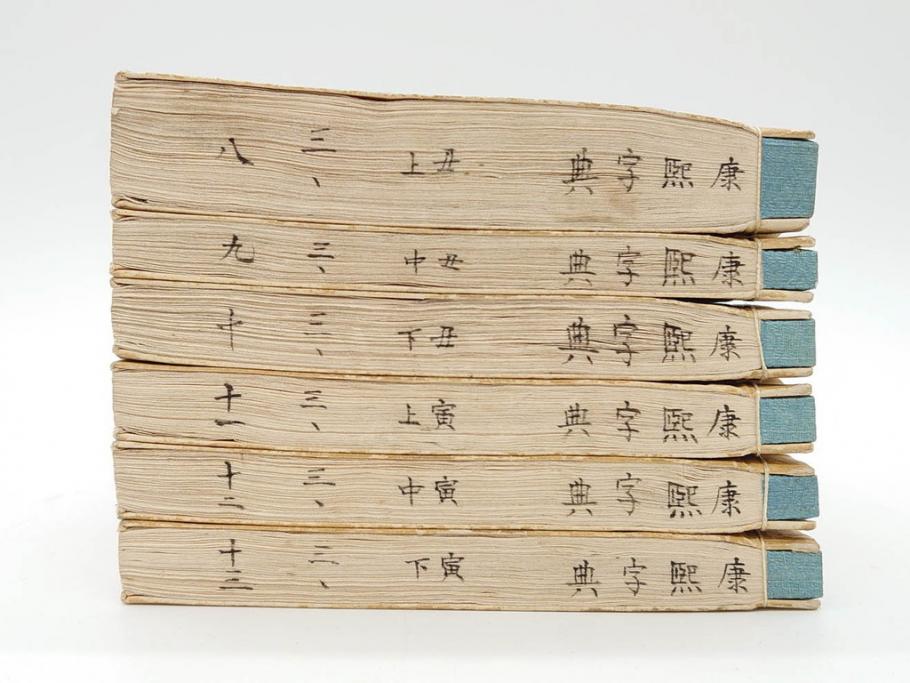 康熙字典 丑上 三、 八
康熙字典 丑中 三、 九
康熙字典 丑下 三、 十
康熙字典 寅上 三、 十一
康熙字典 寅中 三、 十二
康熙字典 寅下 三、 十三